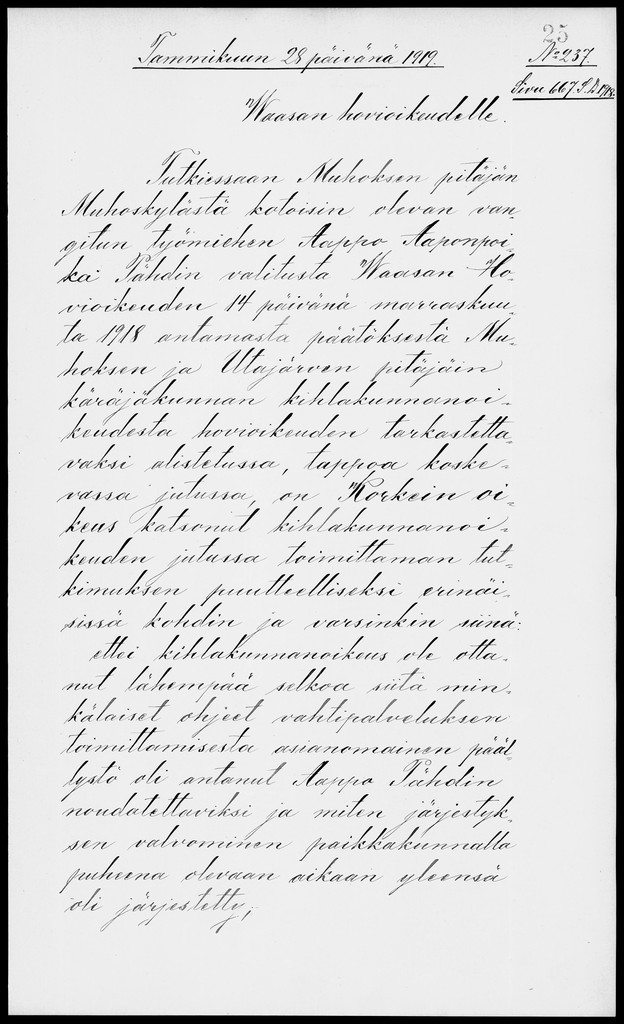 25
Tammikuun 28 päivänä 1919.
No 237.
Sivu 667 S.D. 1918.
Waasan hovioikeudelle.
Tutkiessaan Muhoksen pitäjän
Muhoskylästä kotoisin olevan van-
gitun työmiehen Aappo Aaponpoi-
ka Tähdin valitusta Waasan Ho-
vioikeuden 14 päivänä marraskuu-
ta 1918 antamasta päätöksestä Mu-
hoksen ja Utajärven pitäjäin
käräjäkunnan kihlakunnanoi-
keudesta hovioikeuden tarkastetta-
vaksi alistetussa, tappoa koske-
vassa jutussa, on Korkein oi-
keus katsonut kihlakunnanoi-
keuden jutussa toimittaman tut-
kimuksen puutteelliseksi erinäi-
sissä kohdin ja varsinkin siinä:
ettei kihlakunnanoikeus ole otta-
nut lähempää selkoa siitä min-
kälaiset ohjeet vahtipalveluksen
toimittamisesta asianomainen pääl-
lystö oli antanut Aappo Tähdin
noudatettaviksi ja miten järjestyk-
sen valvominen paikkakunnalla
puheena olevaan aikaan yleensä
oli järjestetty;